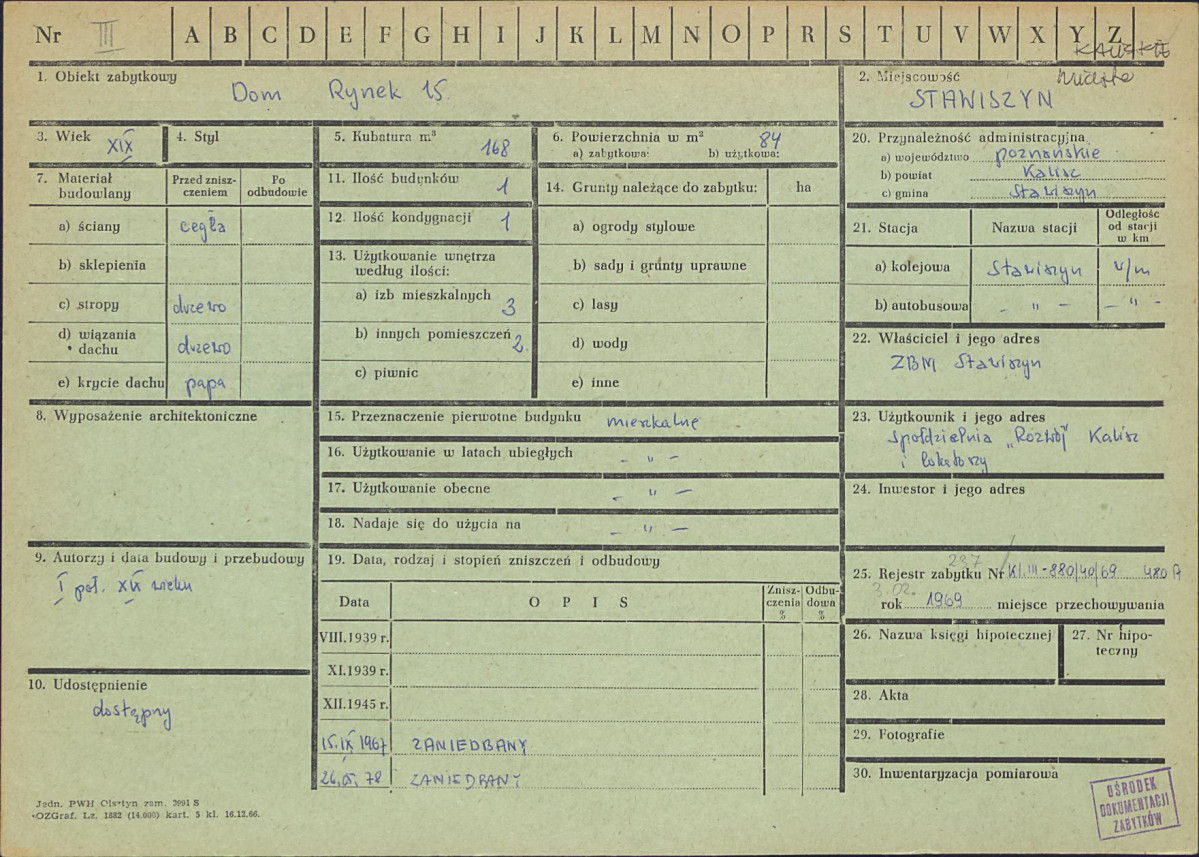 Nr III A B C D E F G H I J K L M N O P R S T U V W X Y Z
KALISKIE
1. Obiekt zabytkowy
Dom Rynek 15.
2. Miejscowość miasto
STAWISZYN
3. Wiek XIX
4. Styl
5. Kubatura m³ 168
6. Powierzchnia w m² 84
a) zabytkowa: b) użytkowa:
20. Przynależność administracyjna
a) województwo poznańskie
b) powiat Kalisz
c) gmina Stawiszyn
7. Materiał budowlany
Przed znisz-
czeniem
Po
odbudowie
a) ściany cegła
b) sklepienia
c) stropy drzewo
d) wiązania
dachu drzewo
e) krycie dachu papa
11. Ilość budynków 1
12. Ilość kondygnacji 1
13. Użytkowanie wnętrza
według ilości:
a) izb mieszkalnych 3
b) innych pomieszczeń 2.
c) piwnic
14. Grunty należące do zabytku: ha
a) ogrody stylowe
b) sady i grunty uprawne
c) lasy
d) wody
e) inne
21. Stacja Nazwa stacji
Odległość
od stacji
w km
a) kolejowa Stawiszyn w/m
b) autobusowa – " – – " –
22. Właściciel i jego adres
ZBM Stawiszyn
8. Wyposażenie architektoniczne
15. Przeznaczenie pierwotne budynku mieszkalne
16. Użytkowanie w latach ubiegłych – " –
17. Użytkowanie obecne – " –
18. Nadaje się do użycia na – " –
23. Użytkownik i jego adres
Spółdzielnia „Rozwój" Kalisz
i lokatorzy
24. Inwestor i jego adres
9. Autorzy i data budowy i przebudowy
I poł. XIX wieku
10. Udostępnienie
dostępny
19. Data, rodzaj i stopień zniszczeń i odbudowy
Data OPIS
Znisz-
czenia
%
Odbu-
dowa
%
VIII.1939 r.
XI.1939 r.
XII.1945 r.
15.IX 1967 ZANIEDBANY
26.05.78 ZANIEDBANY
237
25. Rejestr zabytku Nr Kl.III-880/40/69 480 A
3.02.
rok 1969 miejsce przechowywania
26. Nazwa księgi hipotecznej
27. Nr hipo-
teczny
28. Akta
29. Fotografie
30. Inwentaryzacja pomiarowa
OŚRODEK
DOKUMENTACJI
ZABYTKÓW
Jedn. PWH Olsztyn zam. 3991 S
OZGraf. Lz. 1882 (14.000) kart. 5 kl. 16.12.66.